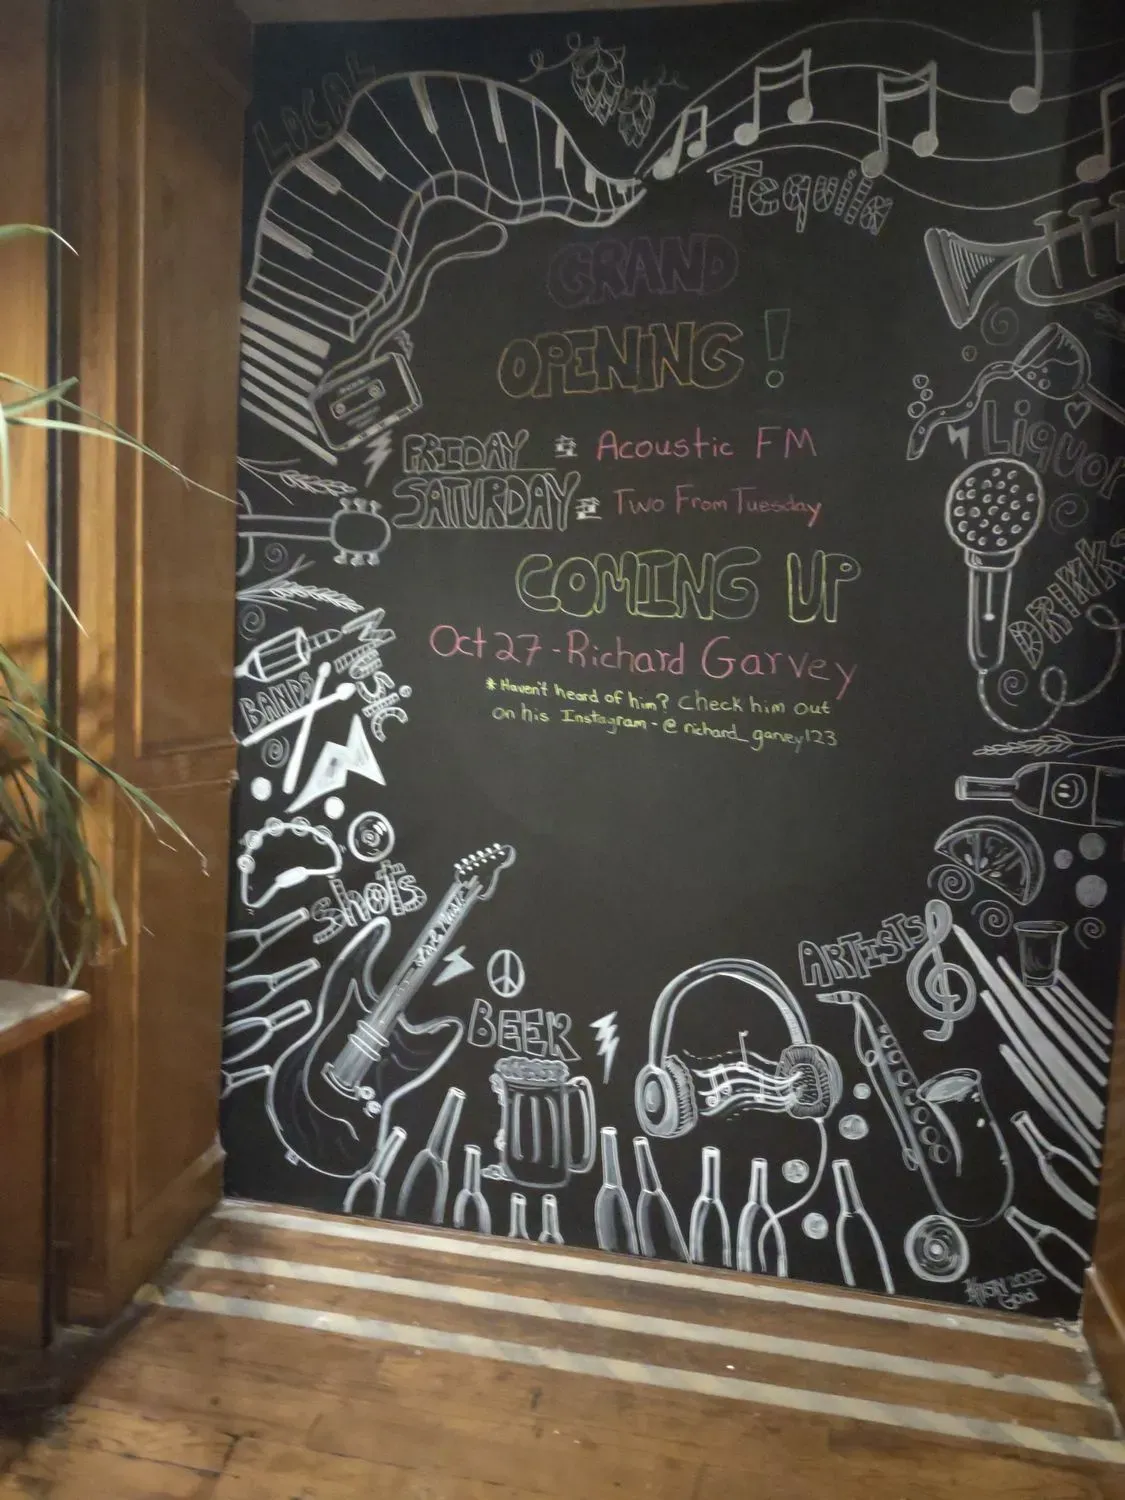 LOCAL
Tequila
GRAND
OPENING!
Liquor
FRIDAY : Acoustic FM
SATURDAY : Two From Tuesday
DRINKS
COMING UP
Oct 27 - Richard Garvey
* Haven't heard of him? Check him out
on his Instagram - @ richard_garvey123
Music
BANDS
shots
ARTISTS
BEER
2023